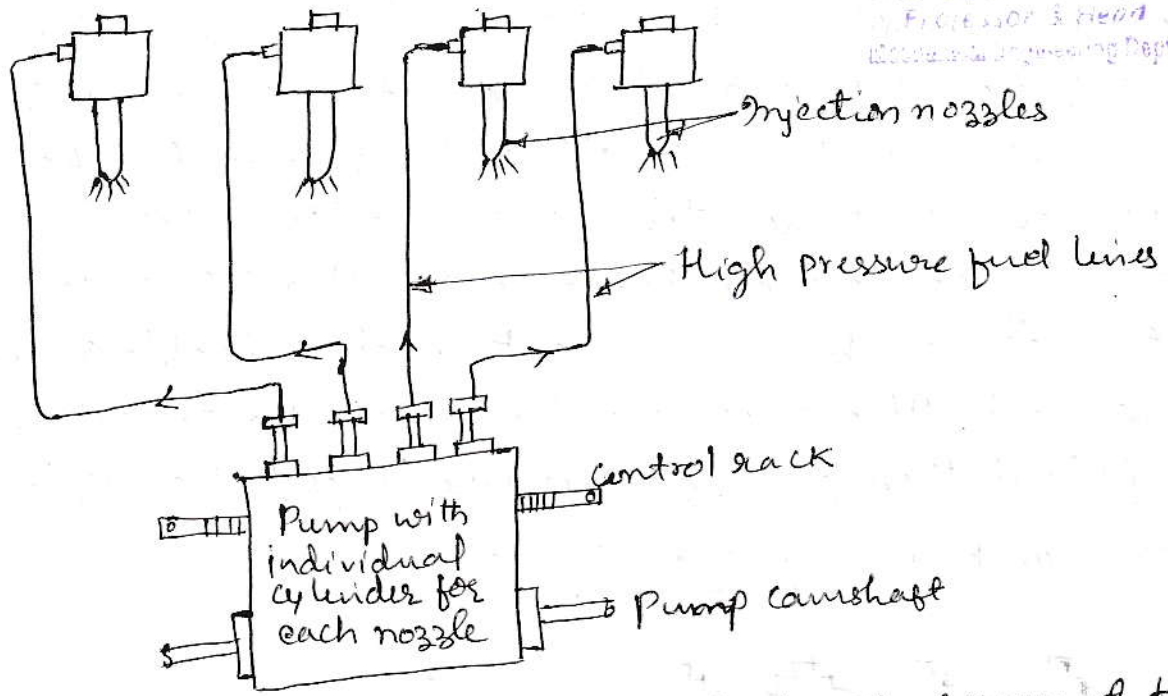 Professor & Head
Injection nozzles
High pressure fuel lines
Control rack
Pump with
individual
cylinder for
each nozzle
Pump camshaft